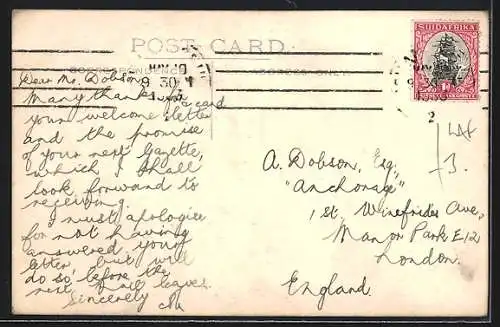 POST CARD
CORRESPONDENCE
ADDRESS ONLY
SUIDAFRIKA
8 30
2
Dear Mr. Dobson,
Many thanks for
your welcome letter & card
and the promise
of your next Gazette,
which I shall
look forward to
receiving.
I must apologise
for not having
answered your
letter, but will
do so, before the
next mail leaves.
Sincerely
A. Dobson, Esq.,
"Anchorage"
1 St. Winefrides Ave,
Manor Park E12
London.
England.
3.